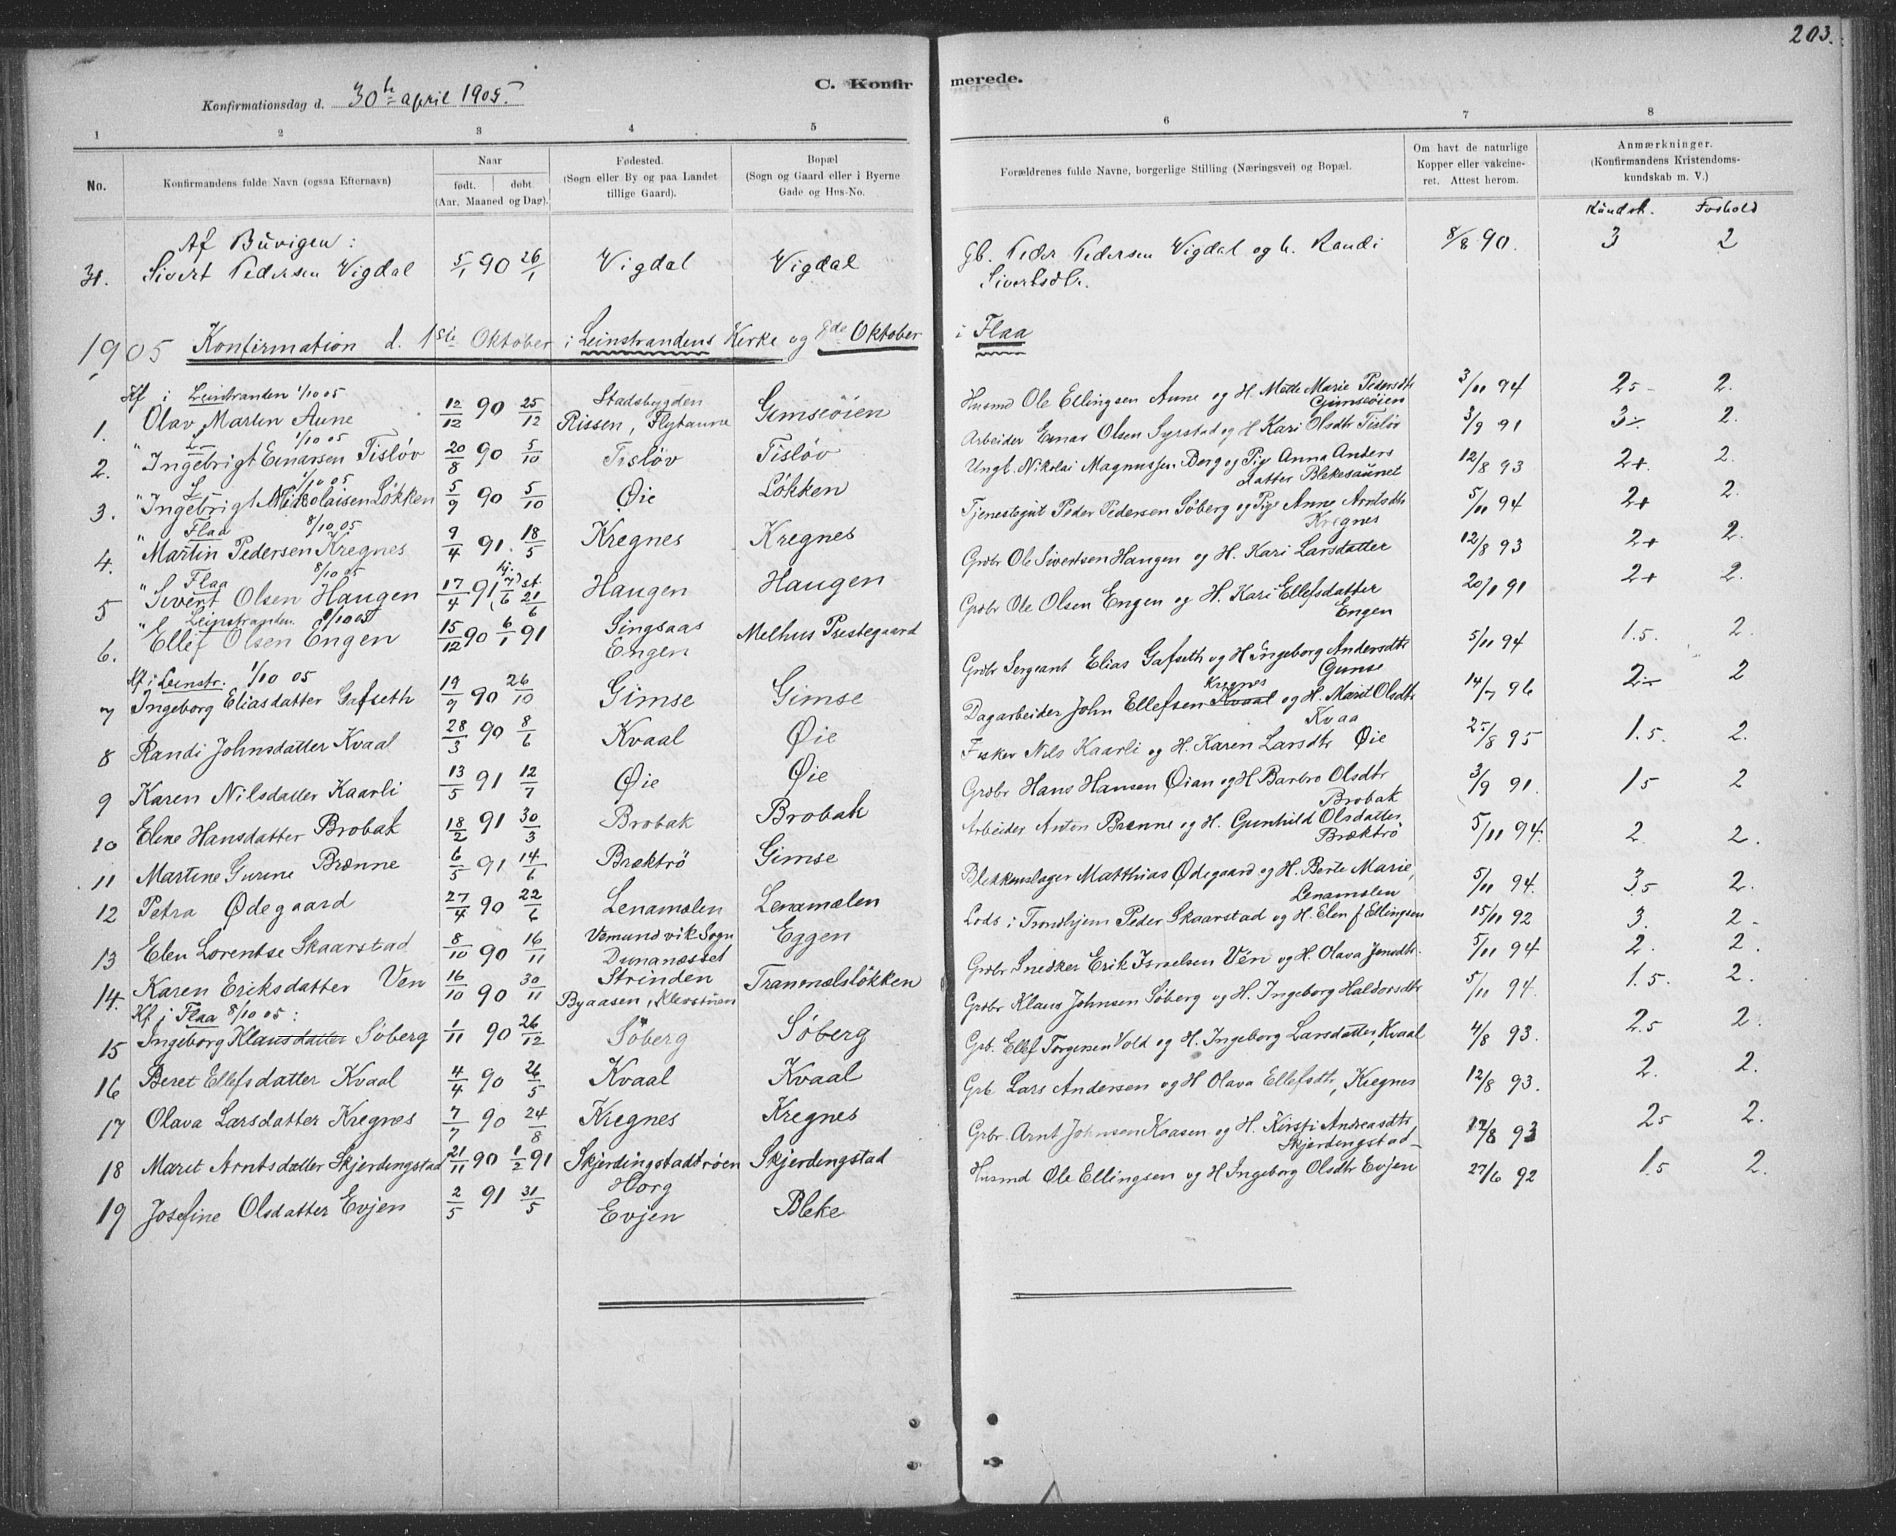 203.
C. Konfirmerede.
Konfirmationsdag d. 30te april 1905.
1 2 3 4 5 6 7 8
No.
Konfirmandens fulde Navn (ogsaa Efternavn)
Naar
født. døbt
(Aar. Maaned og Dag).
Fødested.
(Sogn eller By og paa Landet
tillige Gaard).
Bopæl
(Sogn og Gaard eller i Byerne
Gade og Hus-No.
Forældrenes fulde Navne, borgerlige Stilling (Næringsvei) og Bopæl.
Om havt de naturlige
Kopper eller vakcine-
ret. Attest herom.
Anmærkninger.
(Konfirmandens Kristendoms-
kundskab m. V.)
Kundsk. Forhold
Af Büvigen:
31. Sivert Pedersen Vigdal 5/1 90 26/1 Vigdal Vigdal Gb. Peder Pedersen Vigdal og h. Randi 8/8 90. 3 2
Sivertsdtr.
1905 Konfirmation d. 1ste Oktober i Leinstrandens Kirke og 8de Oktober i Flaa
Kf i Leinstranden 1/10 05
Stadsbygden
1. Olav Martin Aune 12/12 90 25/12 Rissen, Flytaune Gimseøien Husmd Ole Ellingsen Aune og H. Mette Marie Pedersdtr 3/11 94 25- 2.
Gimseøien
" L 1/10 05
2. Ingebrigt Einarsen Tisløv 20/8 90 5/10 Tisløv Tisløv Arbeider Einar Olsen Syrstad og H Kari Olsdtr Tisløv 3/9 91 3 2.
" L 1/10 05
3. Ingebrigt Nikolaisen Løkken 5/9 90 5/10 Øie Løkken Ungk. Nikolai Magnussen Berg og Pige Anna Anders 12/8 93 2+. 2.
datter Blekesaunet
" Flaa 8/10 05
4. Martin Pedersen Kregnes 9/4 91. 18/5 Kregnes Kregnes Tjenestegut Peder Pedersen Søberg og Pige Anne Arntsdtr 5/11 94 2+ 2.
Kregnes
" Flaa 8/10 05
5 Sivert Olsen Haugen 17/4 91 hj. 7/6 st 21/6 Haugen Haugen Grdbr Ole Sivertsen Haugen og H. Kari Larsdatter 12/8 93 2+ 2.
" Leinstranden. 1/10 05
6. Ellif Olsen Engen 15/12 90 6/1 91 Singsaas Melhus Prestegaard Grdbr Ole Olsen Engen og H. Kari Ellefsdatter 20/11 91 2+ 2.
Engen Engen
Kf i Leinstr. 1/10 05
7 Ingeborg Eliasdatter Gafseth 19/9 90 26/10 Gimse Gimse Grdbr Sergeant Elias Gafseth og H Ingeborg Andersdtr 5/11 94 1.5. 2.
Gimse
8 Randi Johnsdatter Kvaal 28/3 90 8/6 Kvaal Øie Dagarbeider John Ellefsen Kvaal Kregnes og H. Marit Olsdtr 14/7 96 2 2
Kvaa
9 Karen Nilsdatter Kaarli 13/5 91 12/7 Øie Øie Fisker Nils Kaarli og H. Karen Larsdtr Øie 25/8 95 1.5. 2.
10 Elene Hansdatter Brobak 18/2 91 30/3 Brobak Brobak Grdbr Hans Hansen Øian og H Barbro Olsdtr 3/9 91. 15 2
Brobak
11 Martine Gurine Brænne 6/5 91 14/6 Bræktrö Gimse Arbeider Anton Brænne og H. Gunhild Olsdatter 5/11 94. 2. 2.
Bræktrö
12 Petra Ødegaard 27/4 90 22/6 Lenamælen Lenamælen Blikkenslager Matthias Ødegaard og H. Berte Marie, 5/11 94. 3.5 2.
Lenamælen
13 Elen Lorentse Skaarstad 8/10 90 16/11 Vemundvik Sogn Eggen Lods i Trondhjem Peder Skaarstad og H. Elen f Ellingsen 15/11 92 3. 2-
Dunanæsset
14. Karen Eriksdatter Ven 16/10 90 30/11 Strinden Tranmælsløkken Grdbr Snedker Erik Israelsen Vén og H. Olava Jensdtr. 5/11 94 2. 2.
Byaasen,
Kf i Flaa 8/10 05:
15 Ingeborg Klausdatter Söberg 1/11 90 26/12 Söberg Söberg Grdbr Klaus Johnsen Søberg og H. Ingeborg Haldorsdtr 5/11 94. 1.5. 2.
16 Beret Ellefsdatter Kvaal 4/4 90 26/5 Kvaal Kvaal Grb. Ellef Torgersen Vold og H. Ingeborg Larsdatter, Kvaal 4/8 93. 2.5 2.
17 Olava Larsdatter Kregnes 7/7 90 24/8 Kregnes Kregnes Grb Lars Andersen og H Olava Ellefsdtr, Kregnes 12/8 93. 2. 2.
18 Marit Arntsdatter Skjerdingstad 21/11 90 1/2 91 Skjerdingstadtrøen Skjerdingstad Grbr. Arnt Johnsen Kaasen og H. Kirsti Andreasdtr 12/8 93 25 2.
Skjerdingstad
19 Josefine Olsdatter Evjen 2/5 91 31/5 Horg Bleke Husmd Ole Ellingsen og H Ingeborg Olsdtr Evjen 27/6 92 1.5 2.
Evjen